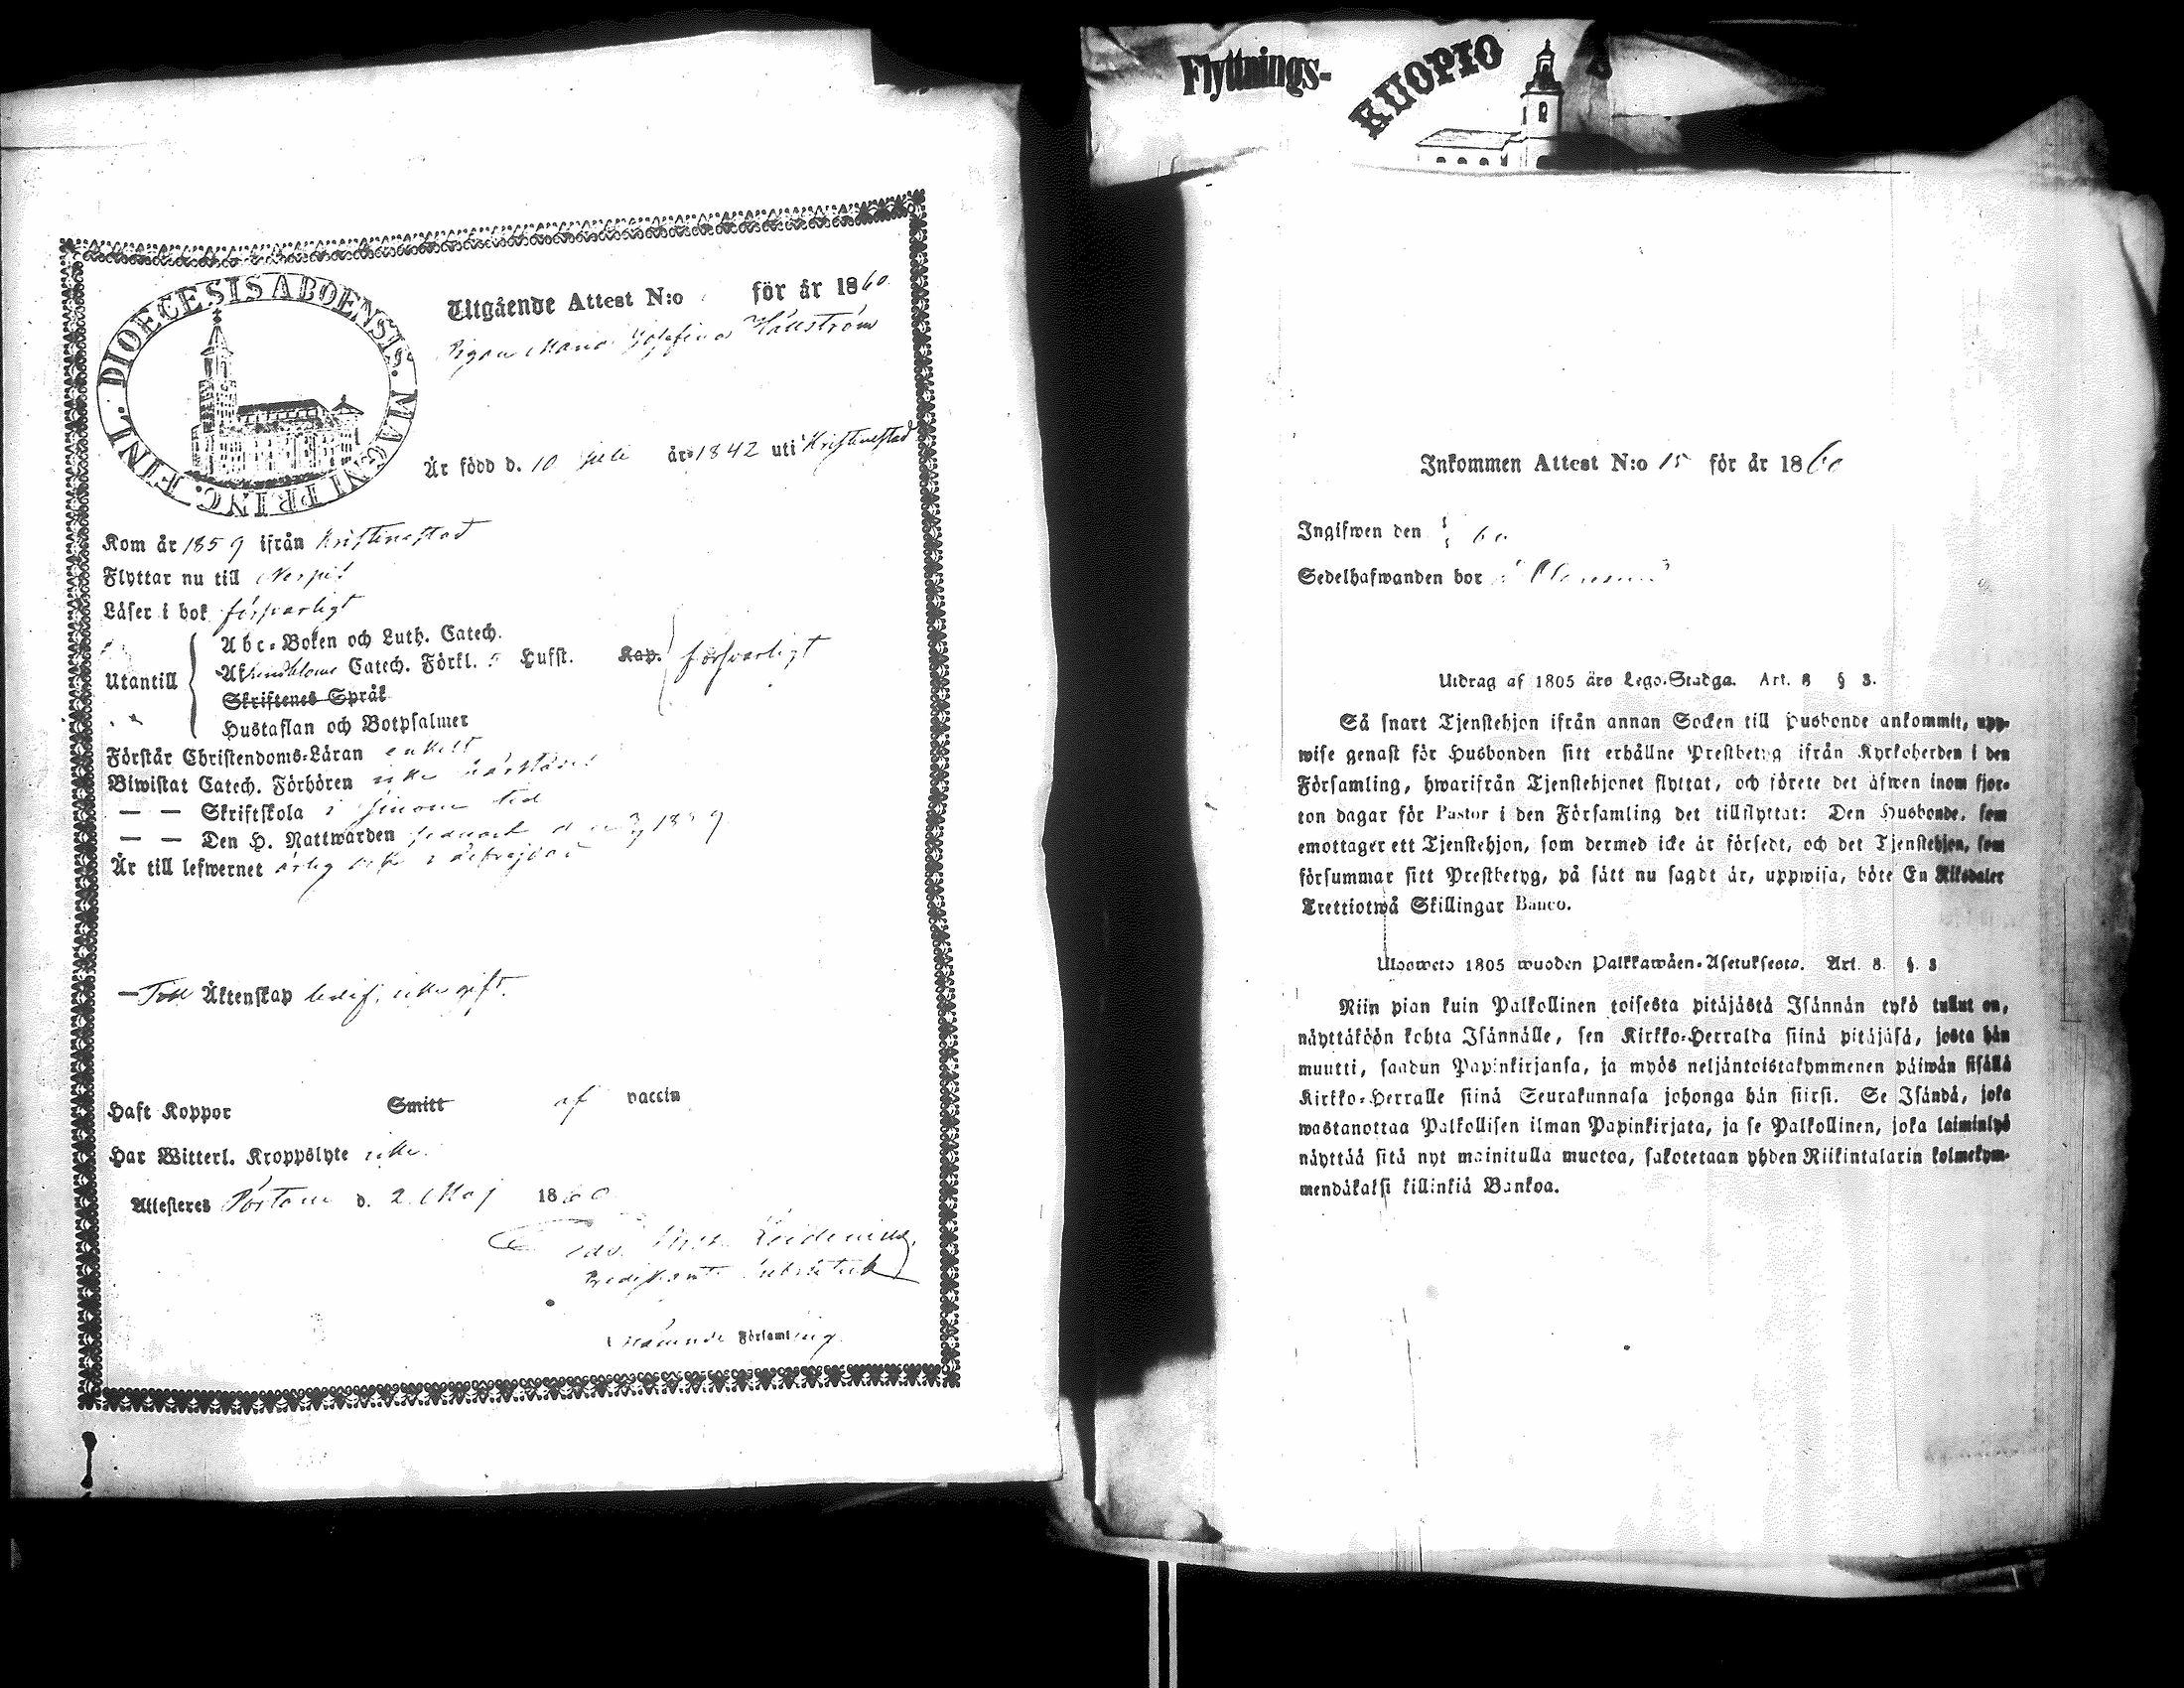 DIOECESIS ABOENSIS. MAGNI PRINC. FINL.
Utgående Attest N:o för år 1860
Pigan Maria Josefina Hällström
Är född d. 10 Juli år 1842 uti Kristinestad
Kom år 1859 ifrån Kristinestad
Flyttar nu till Nerpis
Läser i bok försvarligt
Utantill
Abc-Boken och Luth. Catech.
Af Lindbloms Catech. Förkl. 5 Hufst. Kap. försvarligt
Skriftenes Språk
Hustaflan och Botpsalmer
Förstår Christendoms-Läran enkelt
Biwistat Catech. Förhören icke
— — Skriftskola i sinom tid
— — Den H. Nattwarden senast d. 1859
Är till lefwernet ärlig och
— Till Äktenskap ledig, icke gift.
Haft Koppor Smitt af vaccin
Har Witterl. Kroppslyte icke.
Attesteres Pörtom d. 2 Maj 1860
Predikants Substitut
Församling
Flyttnings-
KUOPIO
Inkommen Attest N:o 15 för år 1860
Ingifwen den 60
Sedelhafwanden bor i
Utdrag af 1805 års Lego-Stadga. Art. 8 § 3.
Så snart Tjenstehjon ifrån annan Socken till Husbonde ankommit, upp-
wise genast för Husbonden sitt erhållne Prestbetyg ifrån Kyrkoherden i den
Församling, hwarifrån Tjenstehjonet flyttat, och förete det äfwen inom fjor-
ton dagar för Pastor i den Församling det tillflyttat: Den Husbonde, som
emottager ett Tjenstehjon, som dermed icke är försedt, och det Tjenstehjon, som
försummar sitt Prestbetyg, på sätt nu sagdt är, uppwisa, böte En Riksdaler
Trettiotwå Skillingar Banco.
Ulosweto 1805 wuoden Palkkawäen-Asetuksesta. Art. 8. §. 3
Niin pian kuin Palkollinen toisesta pitäjästä Isännän tykö tullut on,
näyttäköön kohta Isännälle, sen Kirkko-Herralda siinä pitäjäsä, josta hän
muutti, saadun Papinkirjansa, ja myös neljäntoistakymmenen päiwän sisällä
Kirkko-Herralle siinä Seurakunnasa johonga hän siirsi. Se Isändä, joka
wastanottaa Palkollisen ilman Papinkirjata, ja se Palkollinen, joka laiminlyö
näyttää sitä nyt mainitulla muotoa, sakotetaan yhden Riikintalarin kolmekym-
mendäkaksi killinkiä Bankoa.